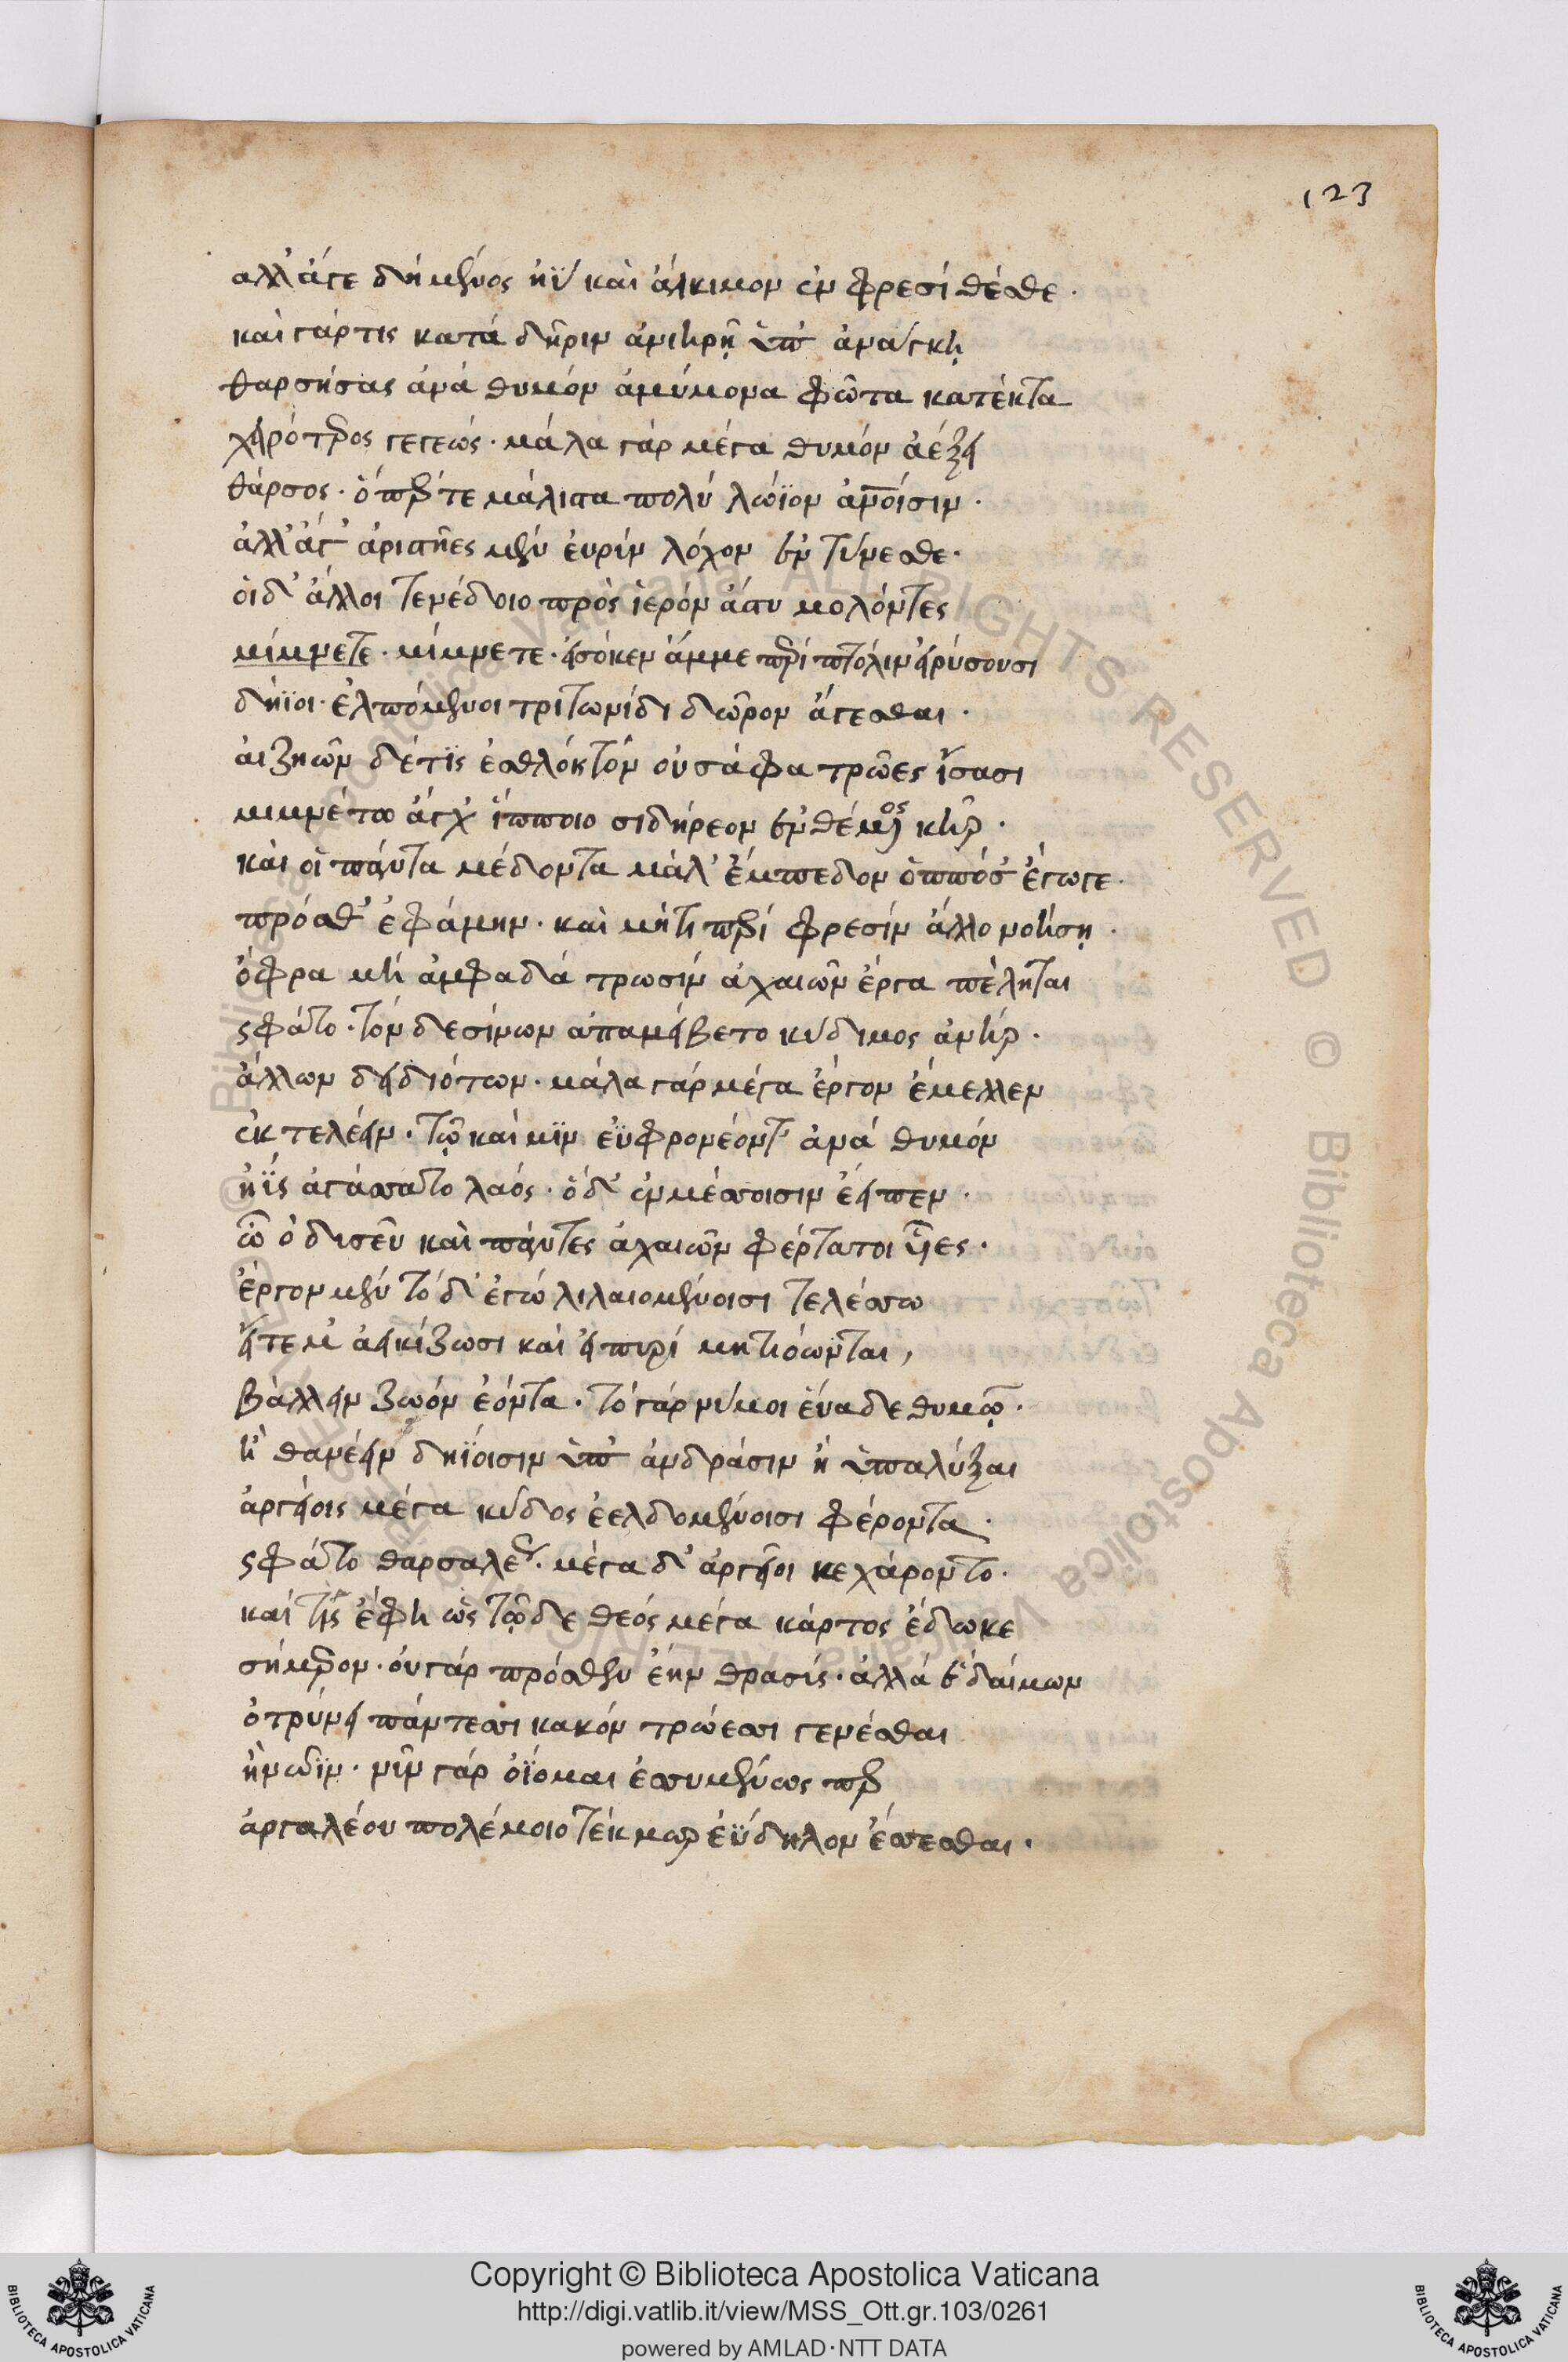 123
ἀλλ' ἄγε δὴ μένος ἠΰ καὶ ἄλκιμον ἐν φρεσὶ θέσθε·
καὶ γάρ τις κατὰ δῆριν ἀνιηρῆ ὑπ' ἀνάγκη
θαρσήσας ἀνὰ θυμὸν ἀμύμονα φῶτα κατέκτα
χειρότερος γεγεώς· μάλα γὰρ μέγα θυμὸν ἀέξει
θάρσος· ὅπερ τε μάλιστα πολὺ λώϊον ἀνοίσιν·
ἀλλ' ἄγ' ἀριστῆες μὲν ἐυρὶν λόχον ἐντύνεσθε·
οἱ δ' ἄλλοι Τενέδοιο πρὸς ἱερὸν ἄστυ μολόντες
μίμνετε· μίμνετε· εἰσόκεν ἄμμε περὶ πτόλιν εἰρύσουσι
δήϊοι· ἐλπόμενοι τριτωνίδι δῶρον ἄγεσθαι·
αἰζηῶν δέ τις ἐσθλὸς τὸν οὐ σάφα τρῶες ἴσασι
μιμνέτω ἄγχ' ἵπποιο σιδήρεον ἐνθέμενος κῆρ·
καὶ οἱ πάντα μέδοντα μάλ' ἔμπεδον ὁππόσ' ἔγωγε·
πρόσθ' ἐφάμην· καὶ μή τι περὶ φρεσὶν ἄλλο νοήση·
ὄφρα μὴ ἀμφαδὰ τρωσὶν ἀχαιῶν ἔργα πέληται
ὣς φάτο· τὸν δὲ σίνων ἀπαμείβετο κύδιμος ἀνήρ·
ἄλλων δειδιότων· μάλα γὰρ μέγα ἔργον ἔμελλεν
ἐκτελέειν· τῷ καί μιν ἐϋφρονέοντ' ἀνὰ θυμὸν
ἠῢς ἀγάσσατο λαός· ὁ δ' ἐν μέσσοισιν ἔειπεν·
ὦ ὀδυσεῦ καὶ πάντες ἀχαιῶν φέρτατοι υἷες·
ἔργον μὲν τόδ' ἐγὼ λιλαιομένοισι τελέσσω
εἴτε μ' ἀεικίζωσι καὶ εἰ πυρὶ μητιόωνται,
βάλλειν ζωὸν ἐόντα· τὸ γὰρ νύ μοι εὔαδε θυμῷ·
ἢ θανέειν δηΐοισιν ὑπ' ἀνδράσιν ἢ ὑπαλύξαι
ἀργείοις μέγα κῦδος ἐελδομένοισι φέροντα·
ὣς φάτο θαρσαλέως· μέγα δ' ἀργεῖοι κεχάροντο·
καί τις ἔφη ὡς τῷδε θεὸς μέγα κάρτος ἔδωκε
σήμερον· οὐ γὰρ πρόσθεν ἔην θρασύς· ἀλλά ἑ δαίμων
ὀτρύνει πάντεσσι κακὸν τρώεσσι γενέσθαι
ἢ νῶϊν· νῦν γὰρ ὀΐομαι ἐσσυμένως περ
ἀργαλέου πολέμοιο τέκμωρ ἐΰδηλον ἔσσεσθαι·
Copyright © Biblioteca Apostolica Vaticana
http://digi.vatlib.it/view/MSS_Ott.gr.103/0261
powered by AMLAD·NTT DATA